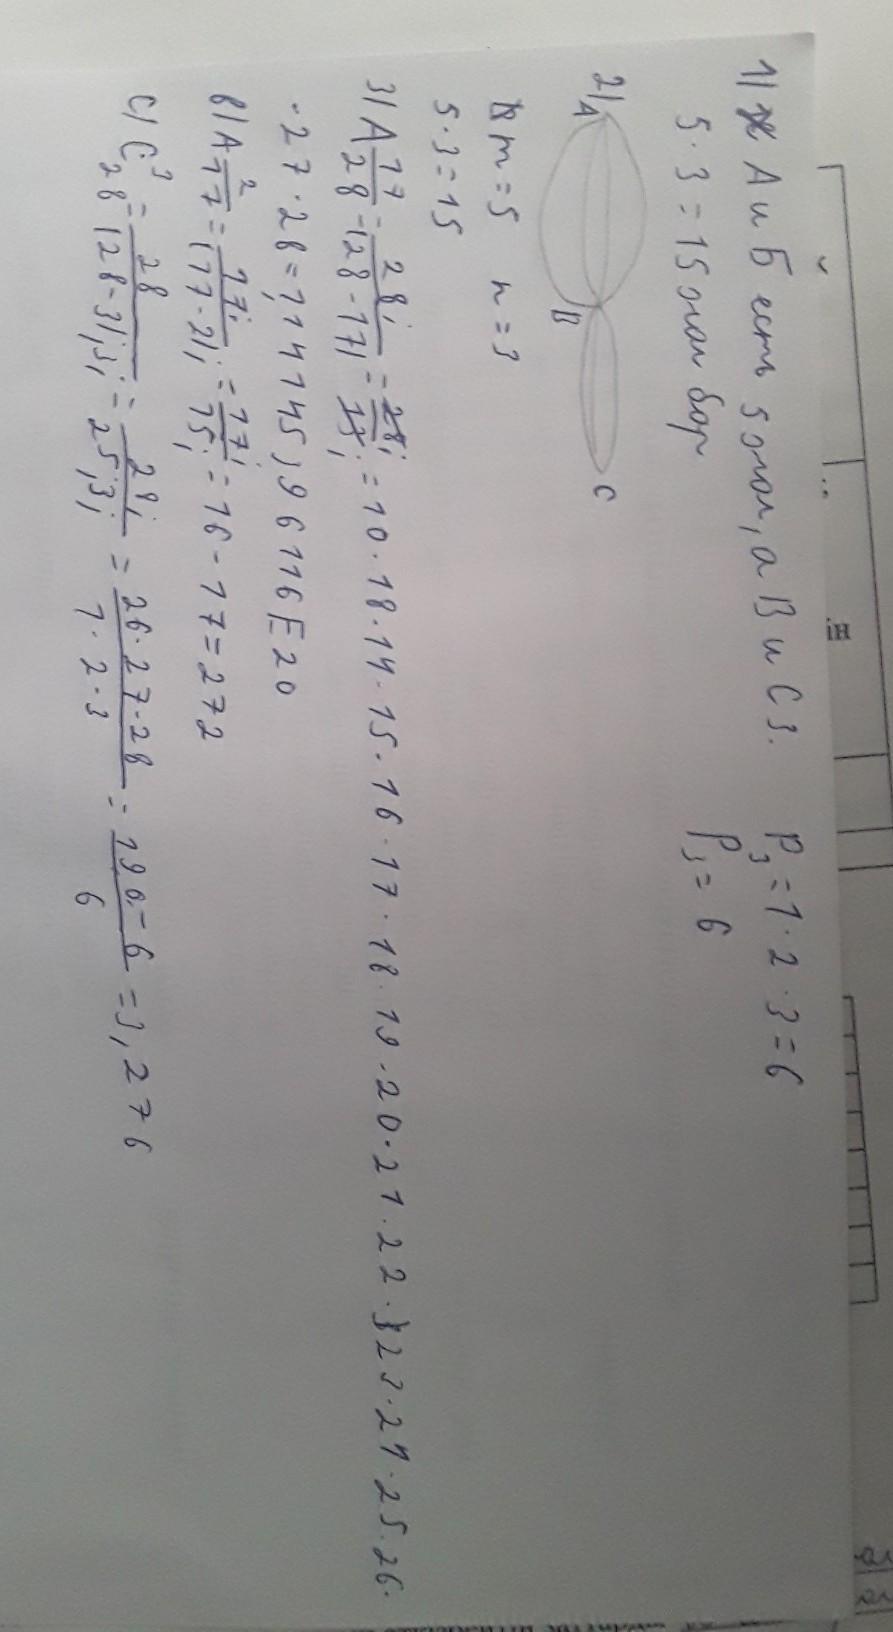 1) А и Б есть 5 жол, а В и С 3. P₃ = 1 · 2 · 3 = 6
5 · 3 = 15 жол бар P₃ = 6
2) A B C
m = 5 n = 3
5 · 3 = 15
3) A 17/28 = 28!/(28-17)! = 28!/ = 10 · 18 · 14 · 15 · 16 · 17 · 18 · 19 · 20 · 21 · 22 · 23 · 24 · 25 · 26 ·
· 27 · 28 = 114145,96116E20
в) A 2/17 = 17!/(17-2)! = 17!/15! = 16 - 17 = 272
с) C ³ ₂₈ = 28/(28-3)!3! = 28!/25!3! = 26·27·28/1·2·3 = /6 = 3,276
ін